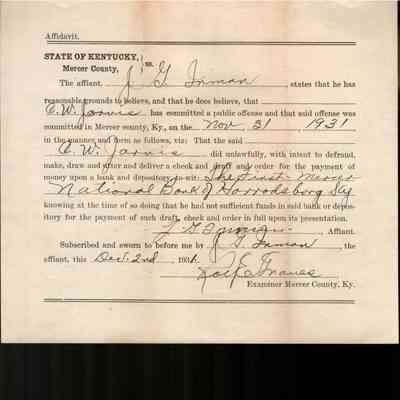 Affidavit.
STATE OF KENTUCKY, } ss.
Mercer County,
The affiant, J. G. Inman, states that he has
reasonable grounds to believe, and that he does believe, that
C. W. Jarvis has committed a public offense and that said offense was
committed in Mercer county, Ky., on the Nov 31, 1931,
in the manner and form as follows, viz: That the said
C. W. Jarvis did unlawfully, with intent to defraud,
make, draw and utter and deliver a check and draft and order for the payment of
money upon a bank and depository, to-wit: The First Mercer
National Bank of Harrodsburg Ky
knowing at the time of so doing that he had not sufficient funds in said bank or depos-
itory for the payment of such draft, check and order in full upon its presentation.
J. G. Inman, Affiant.
Subscribed and sworn to before me by J. G. Inman, the
affiant, this Dec. 2nd, 1931.
Examiner Mercer County, Ky.